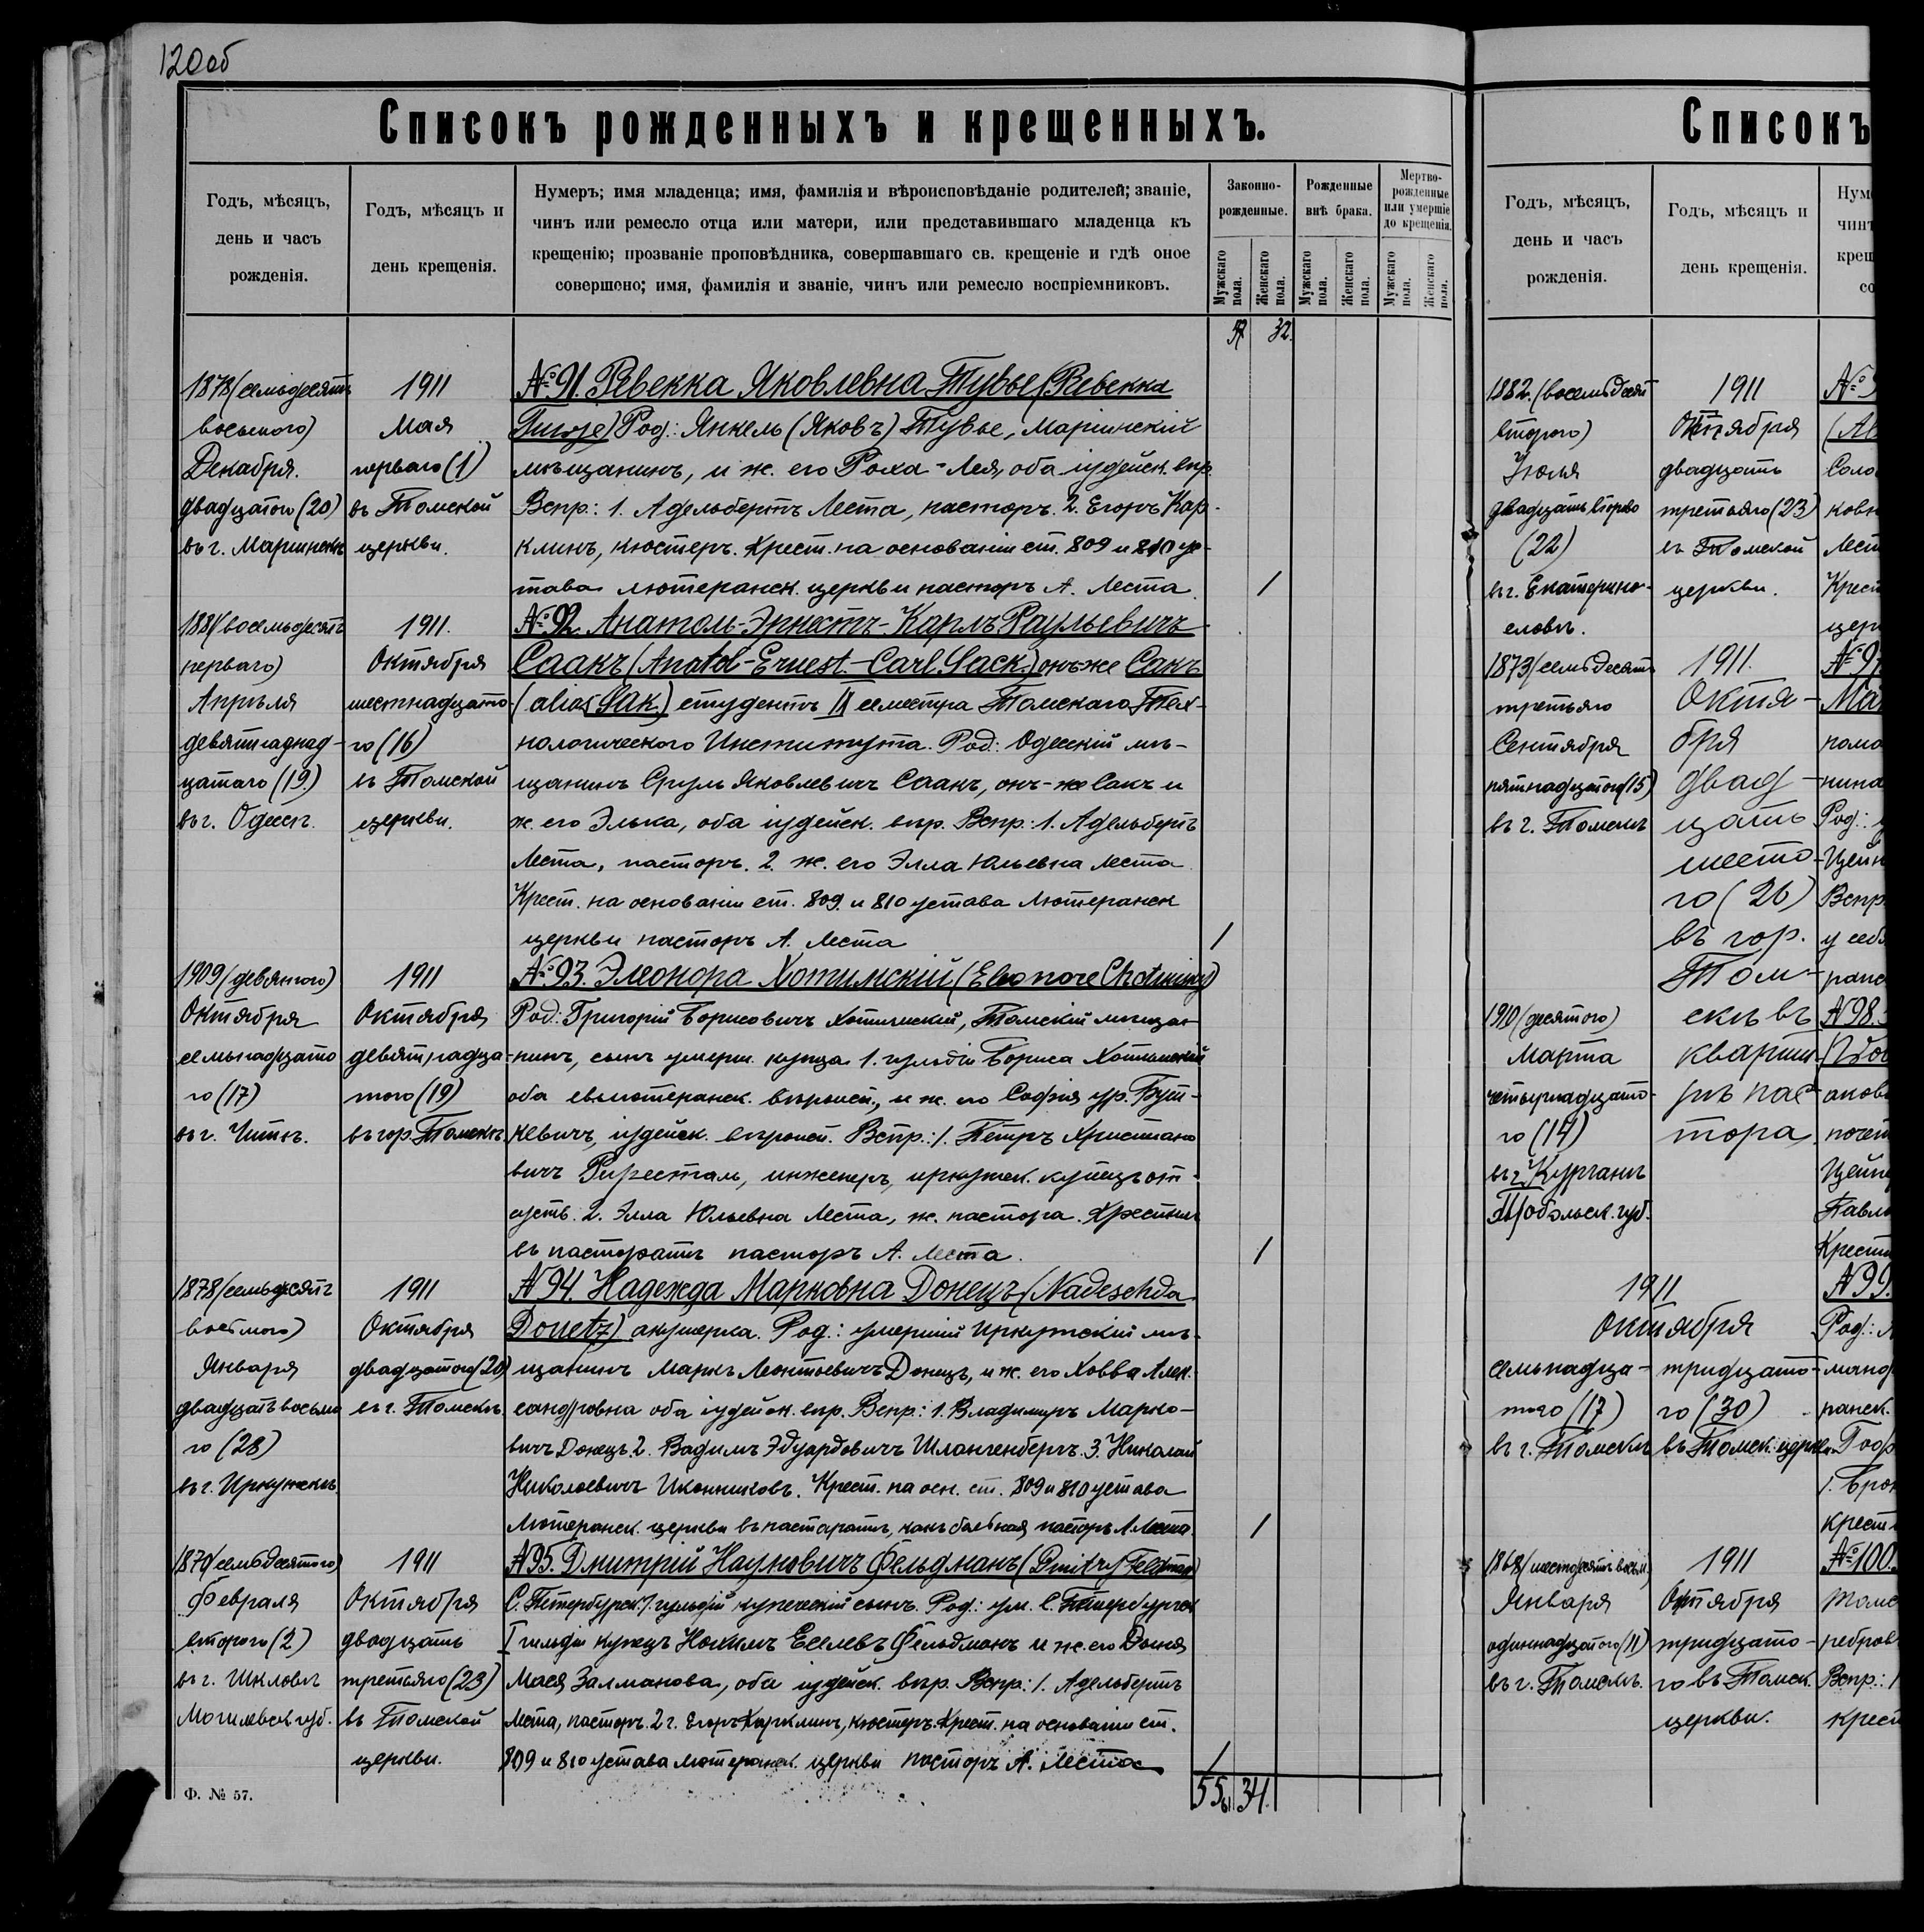 120об
Списокъ рожденныхъ и крещенныхъ.
Годъ, мѣсяцъ,
день и часъ
рожденія.
Годъ, мѣсяцъ и
день крещенія.
Нумеръ; имя младенца; имя, фамилія и вѣроисповѣданіе родителей; званіе,
чинъ или ремесло отца или матери, или представившаго младенца къ
крещенію; прозваніе проповѣдника, совершавшаго св. крещеніе и гдѣ оное
совершено; имя, фамилія и званіе, чинъ или ремесло воспріемниковъ.
Законно-
рожденные.
Рожденные
внѣ брака.
Мертво-
рожденные
или умершіе
до крещенія.
Мужскаго пола.
Женскаго пола.
Мужскаго пола.
Женскаго пола.
Мужскаго пола.
Женскаго пола.
32.
1878 (семьдесятъ
восьмого)
Декабря
двадцатого (20)
въ г. Маріинскѣ
1911
Мая
перваго (1)
въ Томской
церкви.
№ 91. Ревекка Яковлевна Тувье (Rebekka
Tuwje) Род.: Янкель (Яковъ) Тувье, Маріинскій
мѣщанинъ, и ж. его Роха-Лея, оба іудейск. вѣр.
Вспр.: 1. Адельбертъ Леста, пасторъ. 2. Егоръ Кар-
клинъ, кюстеръ. Крест. на основаніи ст. 809 и 810 ус-
тава лютеранск. церкви пасторъ А. Леста
1881 (восемьдесятъ
перваго)
Апрѣля
девятнаднад-
цатаго (19.)
въ г. Одессѣ.
1911.
Октября
шестнадцато-
го (16)
въ Томской
церкви.
№ 92. Анатоль-Эрнестъ-Карлъ Раульевичъ
Саакъ (Anatol-Ernest-Carl Sack.) онъ же Сакъ
(alias Sak.) студентъ II семестра Томскаго Тех-
нологическаго Института. Род: Одесскій мѣ-
щанинъ Сруль Яковлевичъ Саакъ, онъ-же Сакъ и
ж. его Элька, оба іудейск. вѣр. Вспр.: 1. Адельбертъ
Леста, пасторъ. 2. ж. его Элла Юльевна Леста
Крест. на основаніи ст. 809 и 810 устава Лютеранск
церкви пасторъ А. Леста
1909 (девятого)
Октября
семьнадцато
го (17)
въ г. Читѣ.
1911
Октября
девятнадца-
того (19)
въ гор. Томскѣ.
№ 93. Элеонора Хотимскій (Eleonore Chotimsky)
Род: Григорій Борисовичъ Хотимскій, Томскій мѣща-
нинъ, сынъ умерш. купца 1. гильдіи Бориса Хотимскій
оба евлютеранск. вѣроисп., и ж. его Софія ур. Бут-
кевичъ, іудейск. вѣроисп. Вспр.: 1. Петръ Христіано
вичъ инженеръ, иркутск. купецъ от-
сутств. 2. Элла Юльевна Леста, ж. пастора. Крестилъ
въ пасторатѣ пасторъ А. Леста.
1878 (семьдесятъ
восьмого)
Января
двадцать восьмо
го (28)
въ г. Иркутскѣ.
1911
Октября
двадцатого (20)
въ г. Томскѣ.
№ 94. Надежда Марковна Донецъ (Nadeschda
Donetz) акушерка. Род.: умершій Иркутскій мѣ-
щанинъ Маркъ Леонтьевичъ Донецъ, и ж. его Ховва Алек-
сандровна оба іудейск. вѣр. Вспр.: 1. Владимиръ Марко-
вичъ Донецъ. 2. Вадимъ Эдуардовичъ Шлангенбергъ. 3. Николай
Николаевичъ Иконниковъ. Крест. на осн. ст. 809 и 810 устава
Лютеранск. церкви въ пасторатѣ, какъ больная пасторъ А. Леста.
1870 (семьдесятого)
Февраля
второго (2)
въ г. Шкловѣ
Могилевск губ.
1911
Октября
двадцать
третьяго (23)
въ Томской
церкви.
№ 95. Дмитрій Наумовичъ Фельдманъ (Dmitry Feldman)
С. Петербургск. 1. гильдіи купеческій сынъ. Род.: ум. С. Петербургск
I гильдіи купецъ Нохимъ Еселевъ Фельдманъ и ж. его Доня
Мася Залманова, оба іудейск. вѣр. Вспр.: 1. Адельбертъ
Леста, пасторъ. 2 г. Егоръ Карклинъ, кюстеръ. Крест. на основаніи ст.
809 и 810 устава лютеранск. церкви пасторъ А. Леста
55 34.
Ф. № 57.
Списокъ
Годъ, мѣсяцъ,
день и часъ
рожденія.
Годъ, мѣсяцъ и
день крещенія.
Нуме
чинъ
крещ
со
1882. (восемьдесятъ
второго)
Іюля
двадцать второго
(22)
въ г. Екатерино-
славѣ.
1911
Октября
двадцать
третьяго (23)
въ Томской
церкви.
1873 (семьдесятъ
третьяго
Сентября
пятнадцатого (15)
въ г. Томскѣ
1911.
Октя-
бря
двад-
цать
шесто-
го (26)
въ гор.
Том-
скѣ въ
кварти-
рѣ пас-
тора
1910 (десятого)
Марта
четырнадцато-
го (14)
въ г. Курганѣ
Тобольск. губ.
№ 98.
1911
Октября
семьнадца-
того (17)
въ г. Томскѣ
тридцато-
го (30)
въ Томск. церкви.
№ 99.
1868 (шестдесятъ восьм.)
Января
одиннадцатого (11)
въ г. Томскѣ.
1911
Октября
тридцато-
го въ Томск.
церкви.
№ 100.